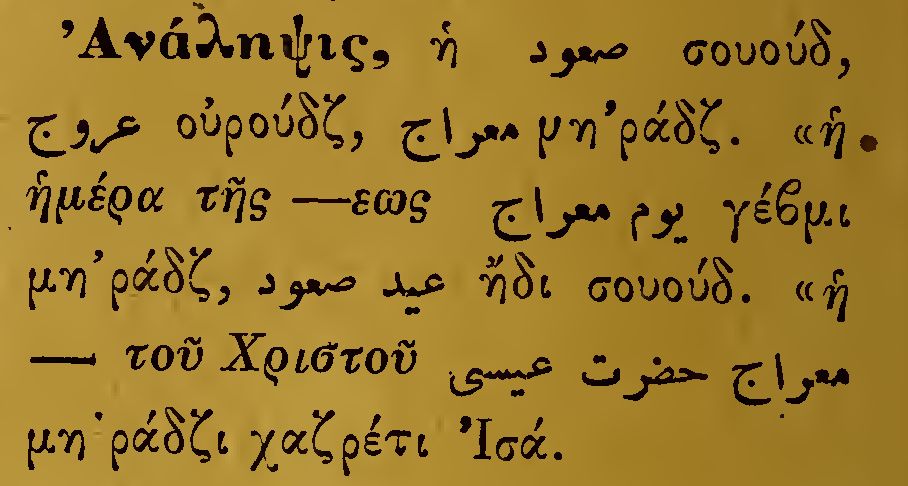 Ἀνάληψις, ἡ صعود σουούδ,
عروج οὐρούδζ, معراج μη’ράδζ. «ἡ
ἡμέρα τῆς —εως يوم معراج γέβμι
μη’ράδζ, عيد صعود ἤδι σουούδ. «ἡ
— τοῦ Χριστοῦ معراج حضرت عيسى
μη’ράδζι χαζρέτι Ἰσά.